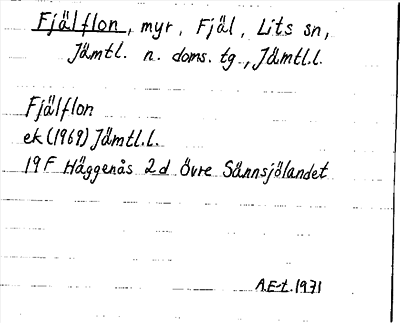 Fjälflon, myr, Fjäl, Lits sn,
Jämtl. n. doms. tg., Jämtl.l.
Fjälflon
ek (1969) Jämtl.l.
19F Häggenås 2d Övre Sännsjölandet
A.E-t. 1971